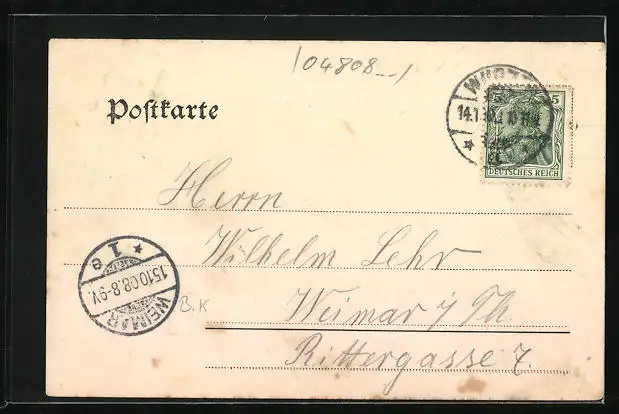 104808--1
Postkarte
5
DEUTSCHES REICH
Herrn
Wilhelm Lehr
Weimar i/Th.
Rittergasse 7.
1 e
15.10.08.8-9V.
WEIMAR
B.K